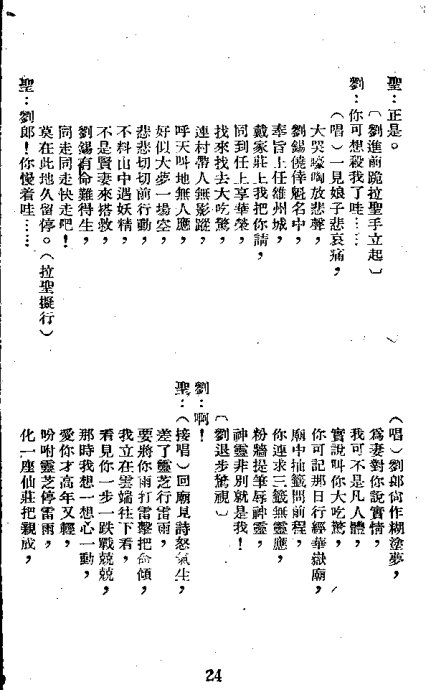 聖：正是。
〔劉進前跪拉聖手立起〕
劉：你可想殺我了哇……
（唱）一見娘子悲哀痛，
大哭嚎啕放悲聲，
劉錫僥倖魁名中，
奉旨上任雄州城，
戴家莊上我把你請，
同到任上享華榮，
找來找去大吃驚，
連村帶人無影蹤，
呼天叫地無人應，
好似大夢一場空，
悲悲切切前行動，
不料山中遇妖精，
不是賢妻來搭救，
劉錫有命難得生，
同走同走快走吧！
莫在此地久留停。（拉聖擬行）
聖：劉郎！你慢着哇……
（唱）劉郎尙作糊塗夢，
爲妻對你說實情，
我可不是凡人體，
實說叫你大吃驚，
你可記那日行經華嶽廟，
廟中抽籤問前程，
你連求三籤無靈應，
粉牆提筆辱神靈，
神靈非別就是我！
〔劉退步驚視〕
劉：啊！
聖：（接唱）回廟見詩怒氣生，
差了靈芝行雷雨，
要將你雨打雷擊把命傾，
我立在雲端往下看，
看見你一步一跌戰兢兢，
那時我想一想心一動，
愛你才高年又輕，
吩咐靈芝停雷雨，
化一座仙莊把親成，
24